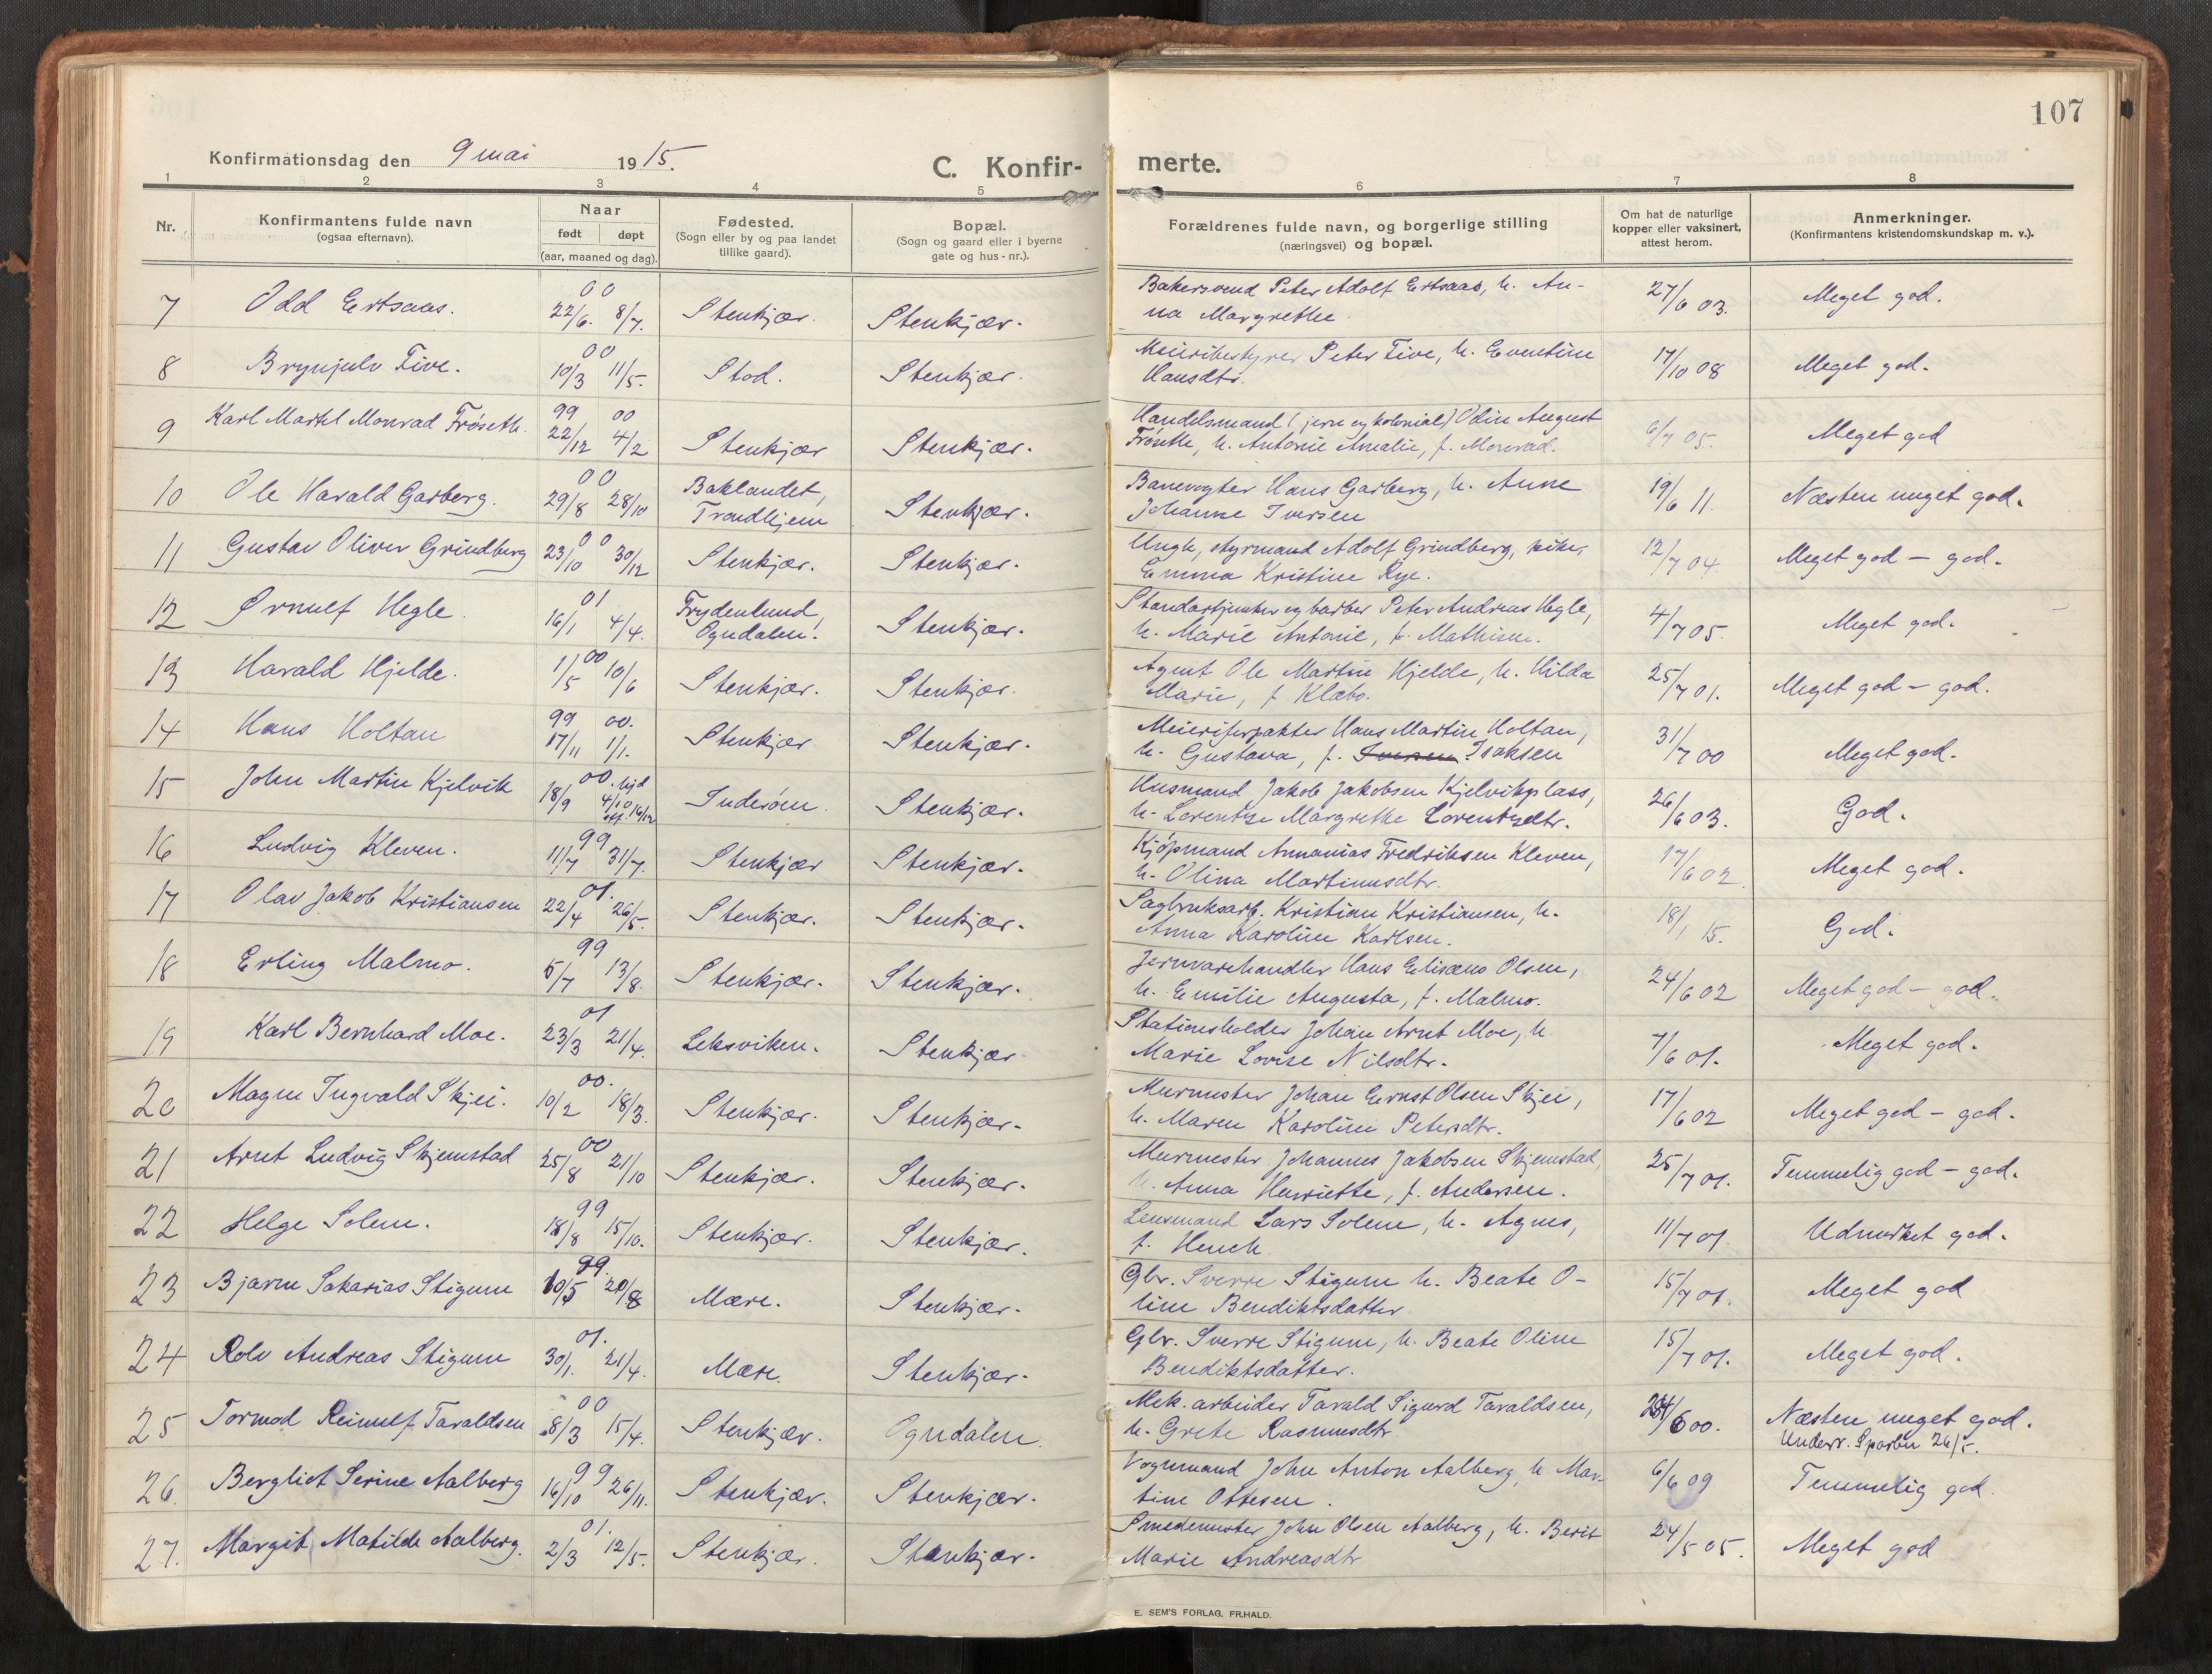 107
Konfirmationsdag den 9 mai 1915.
C. Konfir- merte.
1 2 3 4 5 6 7 8
Nr.
Konfirmantens fulde navn
(ogsaa efternavn).
Naar
født døpt
(aar, maaned og dag).
Fødested.
(Sogn eller by og paa landet
tillike gaard).
Bopæl.
(Sogn og gaard eller i byerne
gate og hus-nr.).
Forældrenes fulde navn, og borgerlige stilling
(næringsvei) og bopæl.
Om hat de naturlige
kopper eller vaksinert,
attest herom.
Anmerkninger.
(Konfirmantens kristendomskundskap m. v.).
7 Odd Ertsaas. 00 22/6. 8/7. Stenkjær. Stenkjær. Bakersvend Peter Adolf Ertsaas, h. An-
na Margrethe. 27/6 03. Meget god.
8 Brynjulv Five. 00 10/3 11/5. Stod. Stenkjær. Meieribestyrer Peter Five, h. Eventine
Hansdtr. 17/10 08 Meget god.
9 Karl Martel Monrad Frøseth. 99 22/12 00 4/2 Stenkjær Stenkjær. Handelsmand (jern og kolonial) Odin August
Frøseth, h. Antonie Amalie, f. Monrad. 6/7 05. Meget god
10 Ole Harald Garberg. 00 29/8 28/10 Baklandet,
Trondhjem Stenkjær. Banevogter Hans Garberg, h. Anne
Johanne Iversen 19/6 11. Næsten meget god.
11 Gustav Oliver Grindberg 00 23/10 30/12 Stenkjær. Stenkjær. Ungk, styrmand Adolf Grindberg, pike,
Emma Kristine Rye. 12/7 04 Meget god - god.
12 Ørnulf Hegle. 01 16/1 4/4. Frydenlund,
Ogndalen. Stenkjær. Standartjunker og barber Peter Andreas Hegle,
h. Marie Antonie, f. Mathisen. 4/7 05. Meget god.
13 Harald Hjelde. 00 1/5 10/6 Stenkjær. Stenkjær. Agent Ole Martin Hjelde, h. Hilda
Marie, f. Klæbo. 25/7 01. Meget god - god.
14 Hans Holtan 99 17/11 00. 1/1. Stenkjær Stenkjær. Meieriforpakter Hans Martin Holtan,
h. Gustava, f. Iversen Isaksen 31/7 00 Meget god.
15 John Martin Kjelvik 00. 18/9 hjd 4/10 off. 16/12 Inderøen. Stenkjær. Husmand Jakob Jakobsen Kjelvikplass,
h. Lorentse Margrethe Lorentzdtr. 26/6 03. God.
16 Ludvig Kleven. 99 11/7 31/7. Stenkjær Stenkjær. Kjøpmand Annanias Fredriksen Kleven,
h. Olina Martinusdtr. 17/6 02. Meget god.
17 Olav Jakob Kristiansen 01. 22/4 26/5. Stenkjær. Stenkjær. Sagbruksarb. Kristian Kristiansen, h.
Anna Karoline Karlsen. 18/1 15. God.
18 Erling Malmo. 99 5/7 13/8. Stenkjær. Stenkjær. Jernvarehandler Hans Elisæus Olsen,
h. Emilie Augusta, f. Malmo. 24/6 02 Meget god - god.
19 Karl Bernhard Moe. 01 23/3 21/4. Leksviken. Stenkjær Stationsholder Johan Arnt Moe, h.
Marie Lovise Nilsdtr. 7/6 01. Meget god.
20 Magne Ingvald Skjei. 00. 10/2 18/3. Stenkjær. Stenkjær. Murmester Johan Ernst Olsen Skjei,
h. Maren Karoline Petersdtr. 17/6 02 Meget god - god.
21 Arnt Ludvig Skjemstad 00 25/8 21/10 Stenkjær. Stenkjær. Murmester Johannes Jakobsen Skjemstad,
h. Anna Henriette, f. Andersen. 25/7 01. Temmelig god - god.
22 Helge Solem. 99 18/8 15/10. Stenkjær. Stenkjær. Lensmand Lars Solem, h. Agnes,
f. Hench 11/7 01 Udmerket god.
23 Bjarne Sakarias Stigum 99. 10/5 20/8 Mære. Stenkjær. Gbr. Sverre Stigum h. Beate O-
line Bendiktsdatter 15/7 01. Meget god
24 Rolv Andreas Stigum 01. 30/1. 21/4. Mære. Stenkjær. Gbr. Sverre Stigum, h. Beate Oline
Bendiktsdatter. 15/7 01. Meget god.
25 Tormod Reinulf Taraldsen 00 8/3 15/4. Stenkjær. Ogndalen. Mek. arbeider Tarald Sigurd Taraldsen,
h. Grete Rasmusdtr 24/6 00. Næsten meget god.
Underv. Sparbu 26/5.
26. Bergliot Serine Aalberg 99 16/10 26/11. Stenkjær. Stenkjær. Vognmand John Anton Aalberg, h Mar-
tine Ottesen. 6/6 09 Temmelig god.
27. Margit Matilde Aalberg. 01. 2/3 12/5. Stenkjær. Stenkjær. Smedemester John Olsen Aalberg, h. Berit
Marie Andreasdtr 24/5 05. Meget god
E. SEM'S FORLAG, FR.HALD.